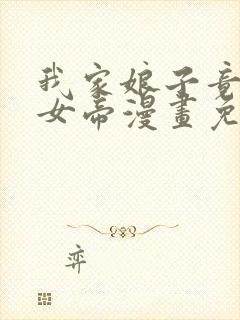 我家娘子竟
女帝漫畫免
弈